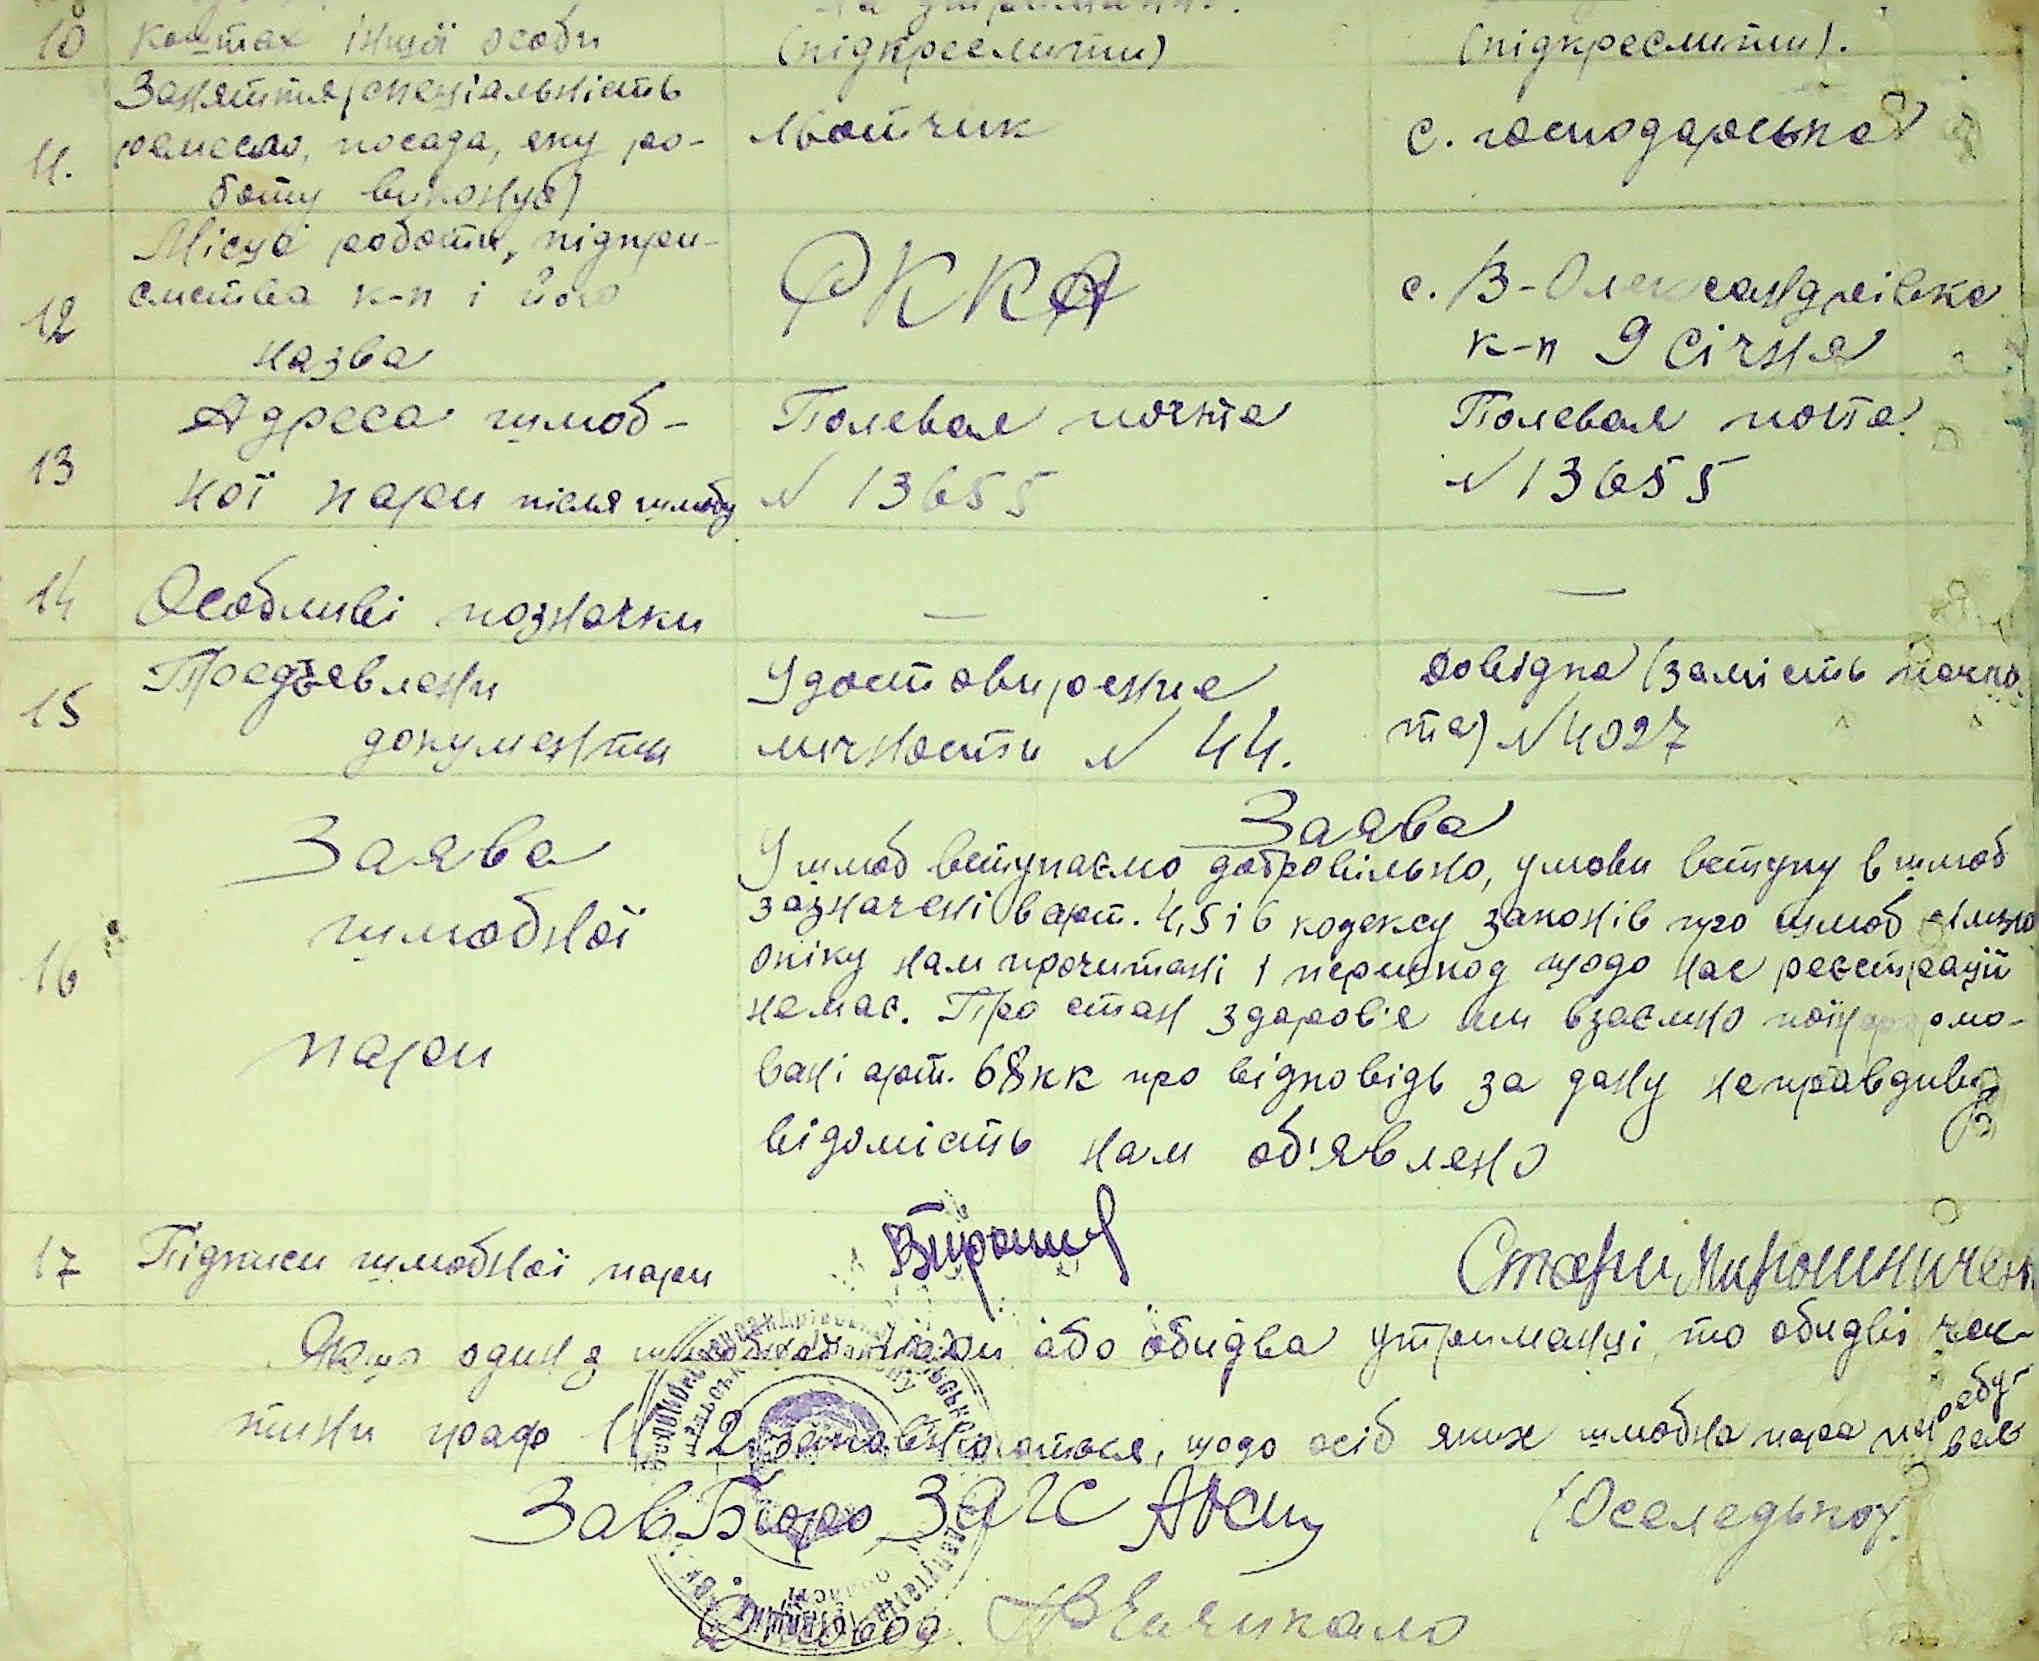 10 коштах іншої особи (підкреслити) (підкреслити).
Заняття, спеціальність
11. ремесло, посада, яку ро- Льотчик с. господарська
боту виконує)
Місце роботи, підпри-
12 ємства к-п і його РККА с. В-Олександрівка
назва к-п 9 Січня
13 Адреса шлюб- Полевая почта Полевая пошта
ної пари після шлюбу № 13655 № 13655
14 Особливі позначки — —
15 Предъявлени Удостовирение довідка (замість пашпо
документи личности № 44. та) № 4027
16 Заява
шлюбної
пари
Заява
У шлюб вступаємо добровільно, умови вступу в шлюб
зазначені в арт. 4, 5 і 6 кодексу законів про шлюб
опіку нам прочитані і перешкод щодо нас реєстрації
немає. Про стан здоров'я ми взаємно поінформо-
вані арт. 68 кк про відповідь за дану неправдиву
відомість нам об'явлено
17 Підписи шлюбної пари Мирошничен
Якщо один з шлюбної пари або обидва утриманці, то обидві час-
тини граф 11 12 заповнюються, щодо осіб яких шлюбна пара
Зав Бюро ЗАГС (Оселедько)